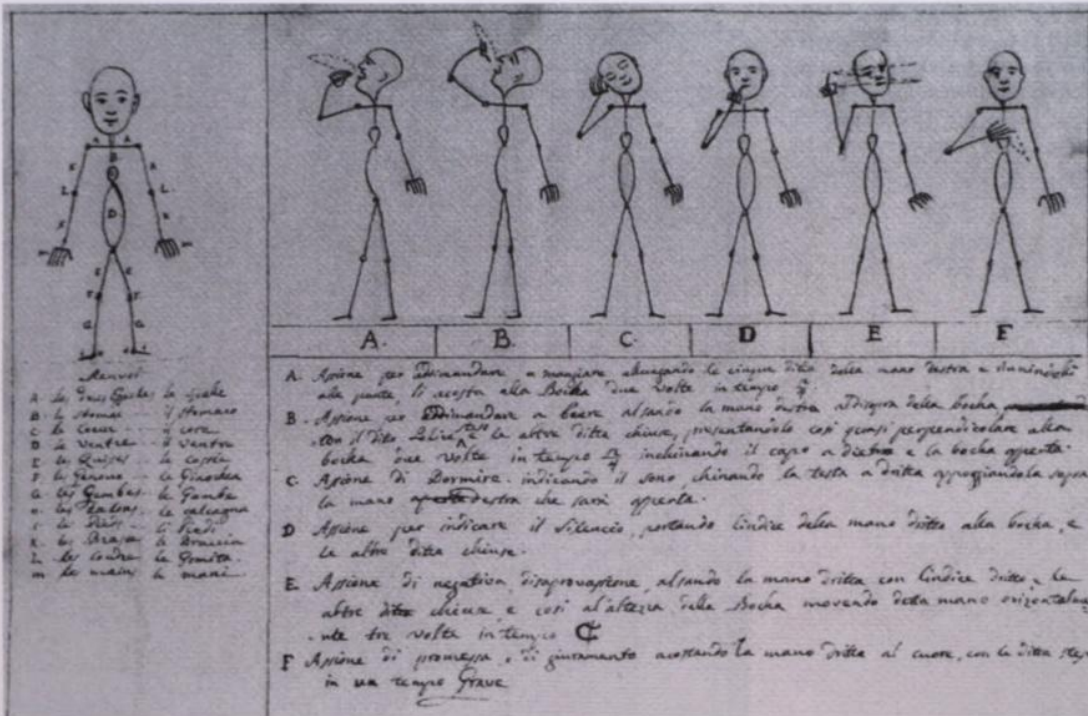 A. B. C. D E F
Renvoi
A. les deux Epaules le Spalle
B. le stomac il stomaco
C le Coeur il core
D le ventre il ventre
E les Cuisses le Coscie
F les Genoux le Ginochia
G. les Gambes le Gambe
les Talons le calcagna
les Pieds li Piedi
K. les Brasa le Braccia
L. les Coudes le Gomita
m le mains le mani
A. Azione per Ddimandare a mangiare alungando le cinque dita della mano destra e
alle punte, li acosta alla Bocha due volte in tempo
B. Azione per Ddimandare a bere alsando la mano destra al disopra della bocha
con il dito Police teso e le altre ditta chiuse, presentandolo cosi quasi perpendicolare alla
bocha due volte in tempo inclinando il capo a dietro e la bocha apperta.
C Azione di Dormire. indicando il sono chinando la testa a dritta appoggiandola sopra
la mano destra che sarà apperta.
D Azione per indicare il silencio, portando lindice della mano dritta alla bocha, e
le altre ditta chiuse.
E Azione di negativa, disaprovazione, alsando la mano dritta con lindice dritto, e le
altre ditta chiuse, e cosi al'altezza della Bocha movendo detta mano
nte tre volte in tempo
F Azione di promessa, o di giuramento acostando la mano dritta al cuore, con le ditta
in un tempo Grave